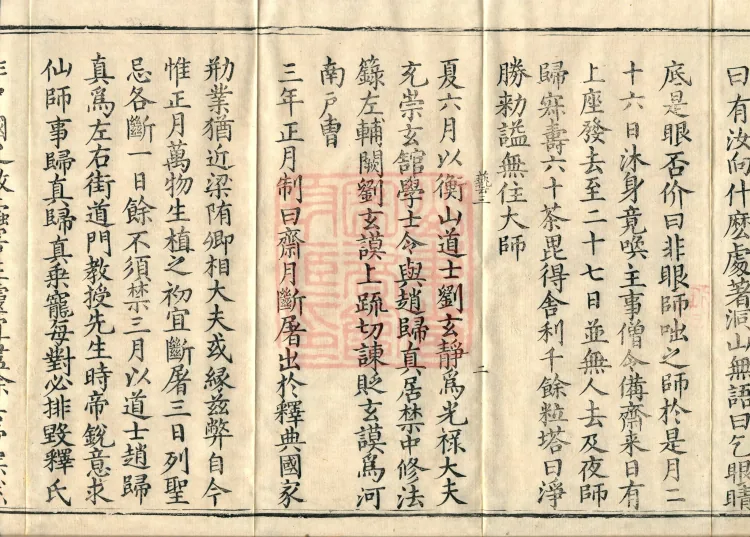 曰有汝向什麽處著洞山無語曰乞眼睛
底是眼否价曰非眼師咄之師於是月二
十六日沐身竟喚主事僧令備齋来日有
上座發去至二十七日並無人去及夜師
歸寂壽六十荼毘得舍利千餘粒塔曰淨
勝勑謚無住大師
二
夏六月以衡山道士劉玄靜爲光禄大夫
充崇玄舘學士令與趙歸真居禁中修法
籙左輔闕劉玄謨上疏切諫貶玄謨爲河
南戸曹
三年正月制曰齋月斷屠出於釋典國家
刱業猶近梁陏卿相大夫或緣兹弊自今
惟正月萬物生植之初宜斷屠三日列聖
忌各斷一日餘不須禁三月以道士趙歸
真爲左右街道門教授先生時帝銳意求
仙師事歸真歸真乗寵每對必排毀釋氏